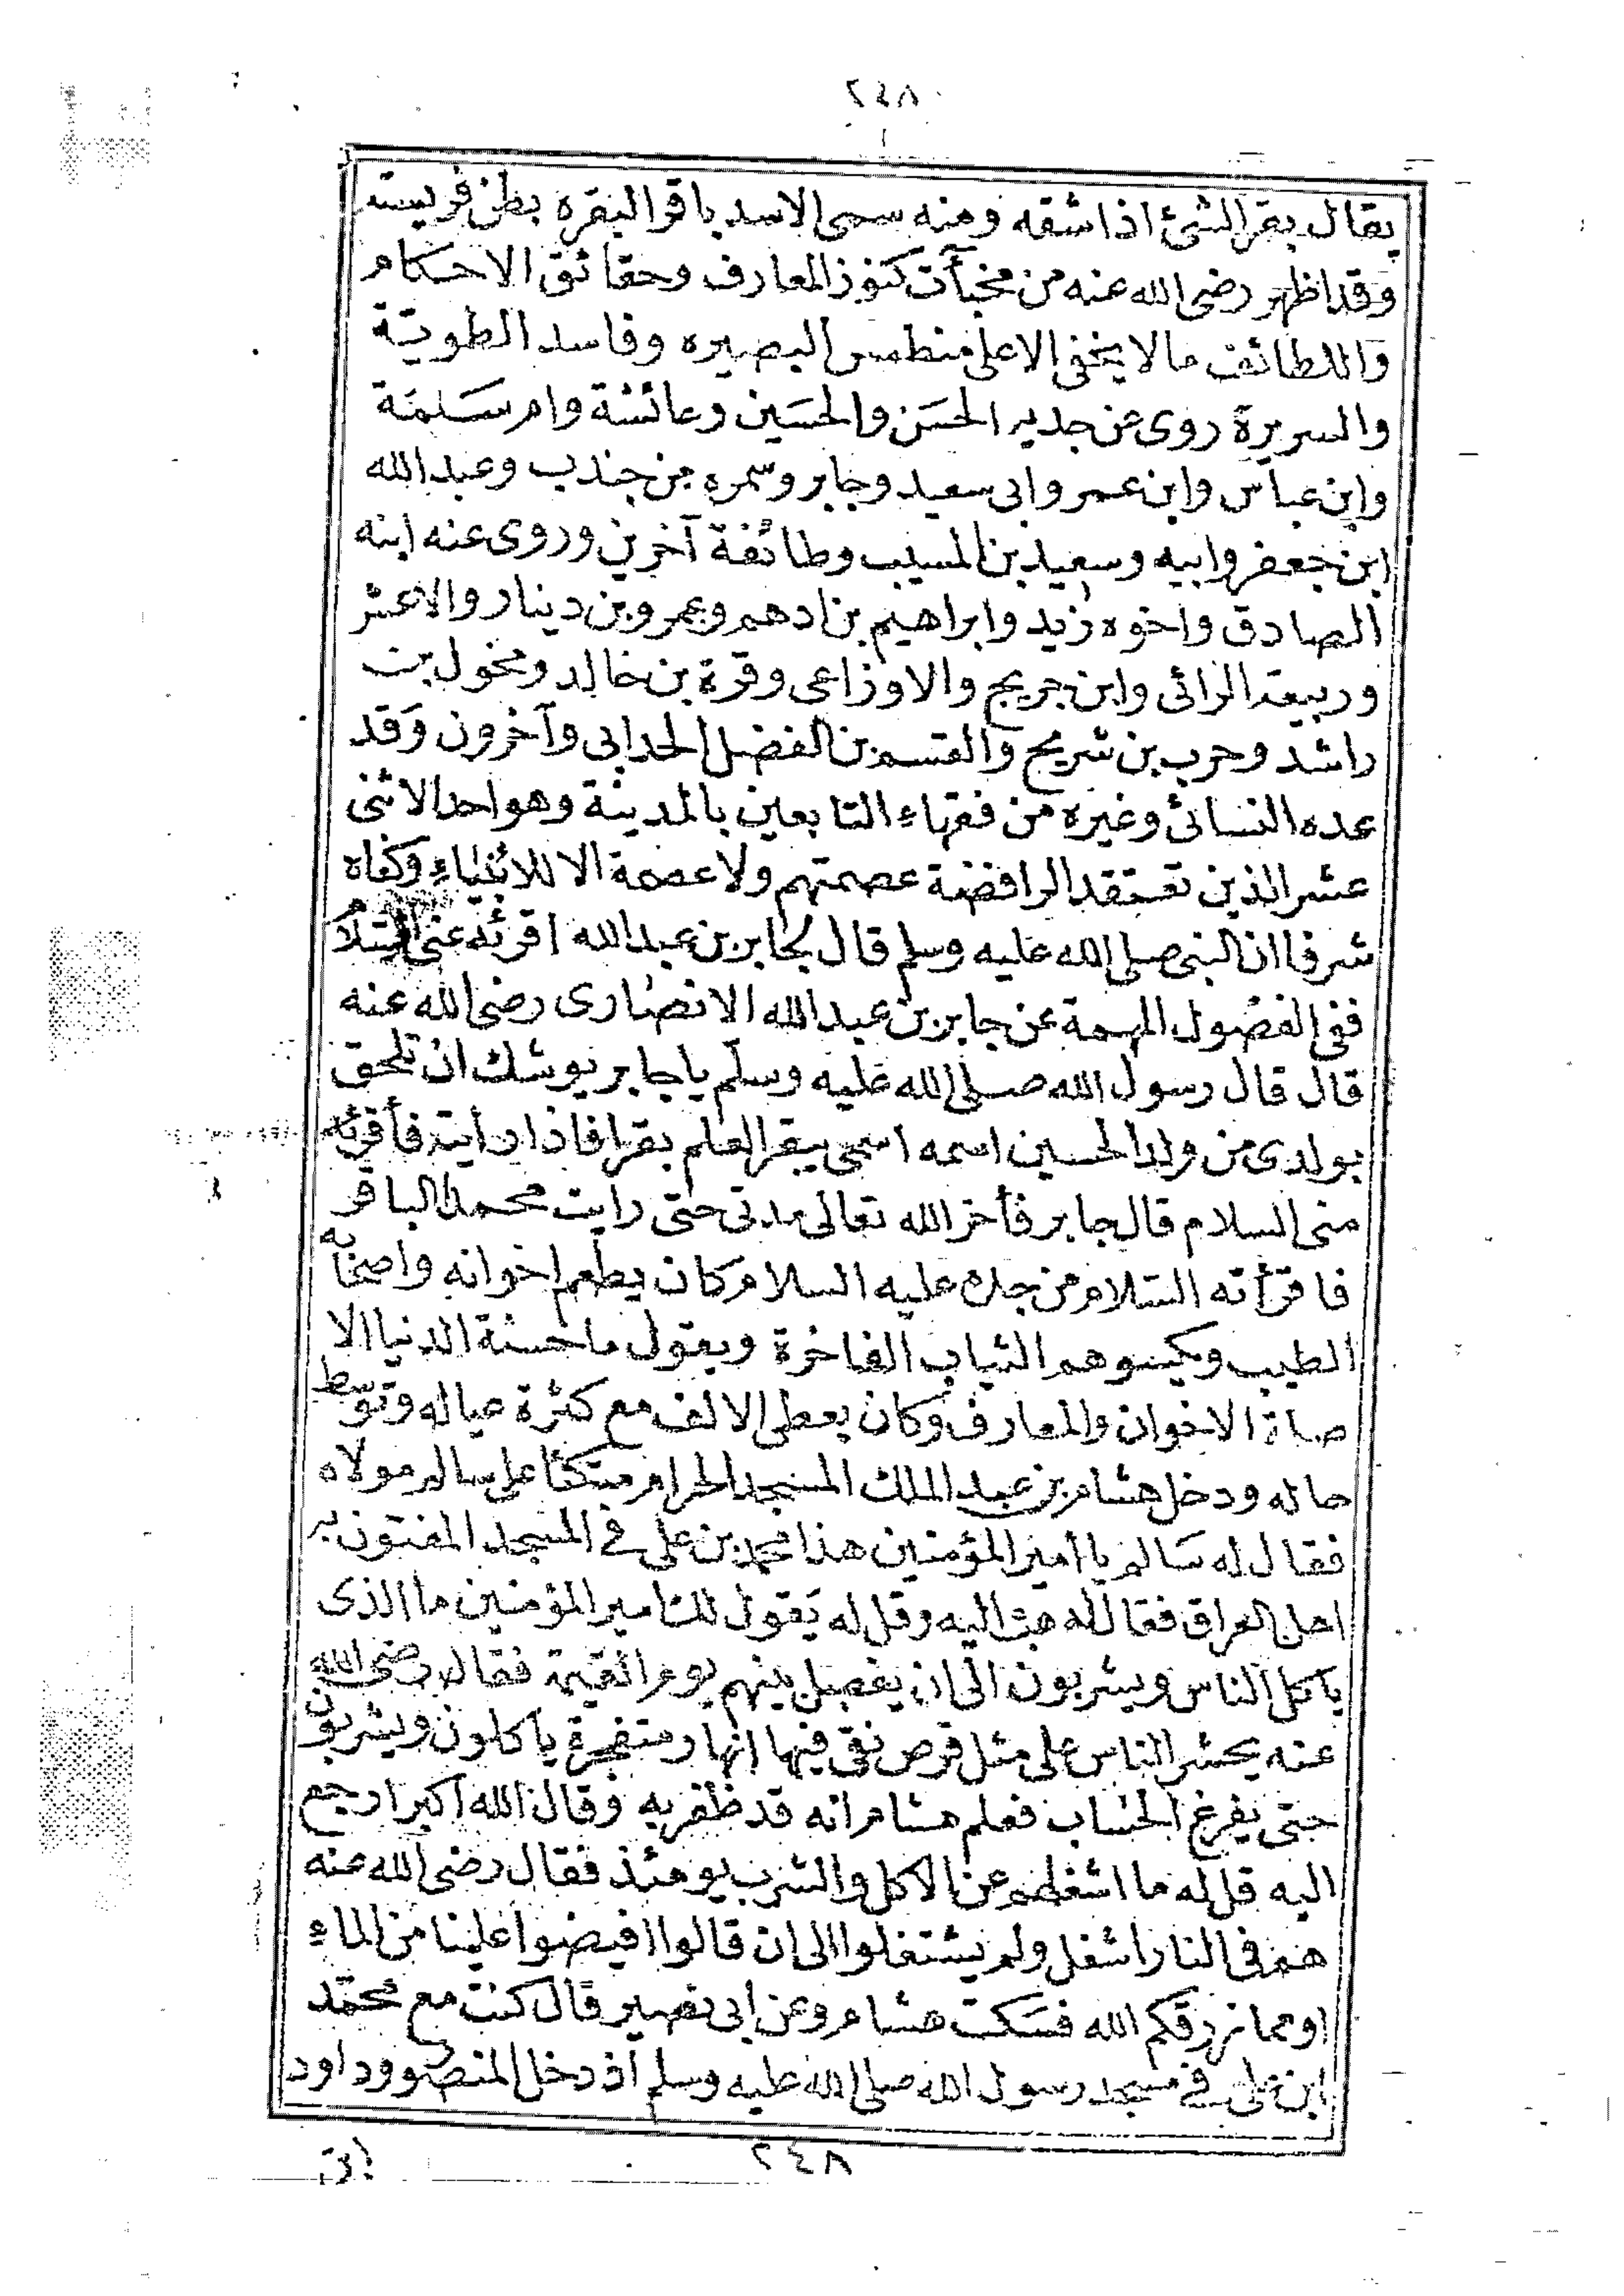 ٢٤٨
يقال بقر الشئ اذا شقه ومنه سمى الاسد باقر البقره بطن فريسته
وقد اظهر رضى الله عنه من مخبآت كنوز المعارف وحقائق الاحكام
واللطائف مالا يخفى الا على منطمس البصيره وفاسد الطوية
والسريرة روى عن جديه الحسن والحسين وعائشة وام سلمة
وابن عباس وابن عمر وابى سعيد وجابر وسمره بن جندب وعبد الله
ابن جعفر وابيه وسعيد بن المسيب وطائفة آخرين وروى عنه ابنه
الصادق واخوه زيد وابراهيم بن ادهم وعمرو بن دينار والاعمش
وربيعة الرائى وابن جريج والاوزاعى وقرة بن خالد ومخول بن
راشد وحرب بن شريح والقسم بن الفضل الحدانى وآخرون وقد
عده النسائى وغيره من فقهاء التابعين بالمدينة وهو احد الاثنى
عشر الذين تعتقد الرافضة عصمتهم ولا عصمة الا للانبياء وكفاه
شرفا ان النبى صلى الله عليه وسلم قال لجابر بن عبد الله اقرئه عنى السلام
ففى الفصول المهمة عن جابر بن عبد الله الانصارى رضى الله عنه
قال قال رسول الله صلى الله عليه وسلم يا جابر يوشك ان تلحق
بولدى من ولد الحسين اسمه اسمى يبقر العلم بقرا فاذا رايته فأقرئه
منى السلام قال جابر فأخر الله تعالى مدتى حتى رايت محمد الباقر
فاقرأته السلام من جده عليه السلام كان يطعم اخوانه واصحابه
الطيب ويكسوهم الثياب الفاخرة ويقول ما حسنة الدنيا الا
صلة الاخوان والمعارف وكان يعطى الالف مع كثرة عياله وتوسط
حاله ودخل هشام بن عبد الملك المسجد الحرام متكئا على سالم مولاه
فقال له سالم يا امير المؤمنين هذا محمد بن على فى المسجد المفتون به
اهل العراق فقال له اليه وقل له يقول لك امير المؤمنين ما الذى
ياكل الناس ويشربون الى ان يفصل بينهم يوم القيمة فقال رضى الله
عنه يحشر الناس على مثل قرص نقى فيها انهار متفجرة ياكلون ويشربون
حتى يفرغ الحساب فعلم هشام انه قد ظفر به وقال الله اكبر ارجع
اليه قل له ما اشغلهم عن الاكل والشرب يومئذ فقال رضى الله عنه
هم فى النار اشغل ولم يشتغلوا الى ان قالوا افيضوا علينا من الماء
او مما رزقكم الله فسكت هشام وعن ابى نصير قال كنت مع محمد
ابن على فى مسجد رسول الله صلى الله عليه وسلم اذ دخل المنصور وداود
٢٤٨